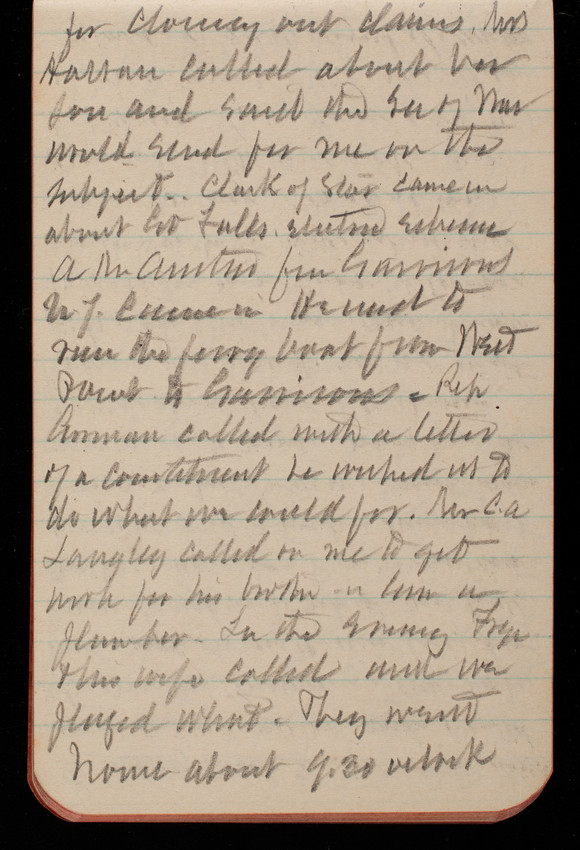 for closing out claims. Mrs
Horran called about her
son and said the Sec of War
would send for me on the
subject.. Clark of Star came in
about Gt Falls electric scheme
A Mr from Garrisons
N.Y. came in He used to
run the ferry boat from West
Point to Garrisons - Rep
Gorman called with a letter
of a constituent he wished us to
do what we could for. Mr C.A
Langley called on me to get
work for his brother in law a
plumber. In the evening
& his wife called and we
played whist. They went
home about 9.30 oclock